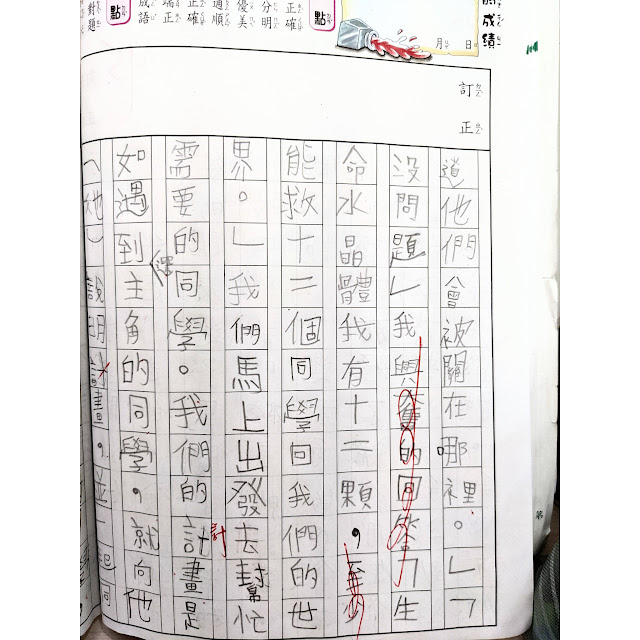 成績
月 日
正確
分明
優美
通順
正確
端正
成語
點
點
對題
訂正
道他們會被關在哪裡。」「
沒問題」我興奮的回答「生
命水晶體我有十二顆，至少
能救十二個同學回我們的世
界。」我們馬上出發去幫忙
需要的同學。我們的計畫是
計
還
如遇到主角的同學，就向他
（她）說明計畫，並一起